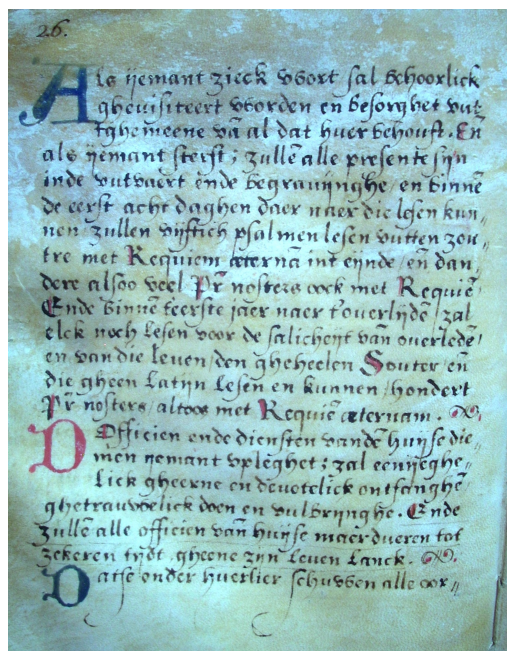 26.
Als yemant zieck wort sal behoorlick
ghevisiteert worden en besorghet vut
tghemeene vā al dat huer behouft. En̄
als yemant sterft; zullē alle presente sijn
inde vutvaert ende begravijnghe, en binnē
de eerst acht daghen daer naer die lesen kun„
nen zullen vijftich psalmen lesen vutten zou„
tre met Requiem æternā int eijnde/ en̄ dan„
dere alsoo veel Pr̄ nosters oock met Requiē
Ende binnē teerste jaer naer t'overlijdē/ zal
elck noch lesen voor de salicheyt van overledē/
en van die leven/ den gheheelen Souter/ en̄
die gheen Latijn lesen en kunnen/ hondert
Pr̄ nosters/ altoos met Requiē æternam.
D'Officien ende diensten vandē huijse die„
men yemant vpleghet; zal eenijeghe„
lick gheerne en devotelick ontfanghē
ghetrauwelick doen en vulbrijnghe. Ende
zullē alle officien van huijse maer dueren tot
zekeren tijdt. gheene zijn leven lanck.
Datse onder huerlier schuwen alle oor„